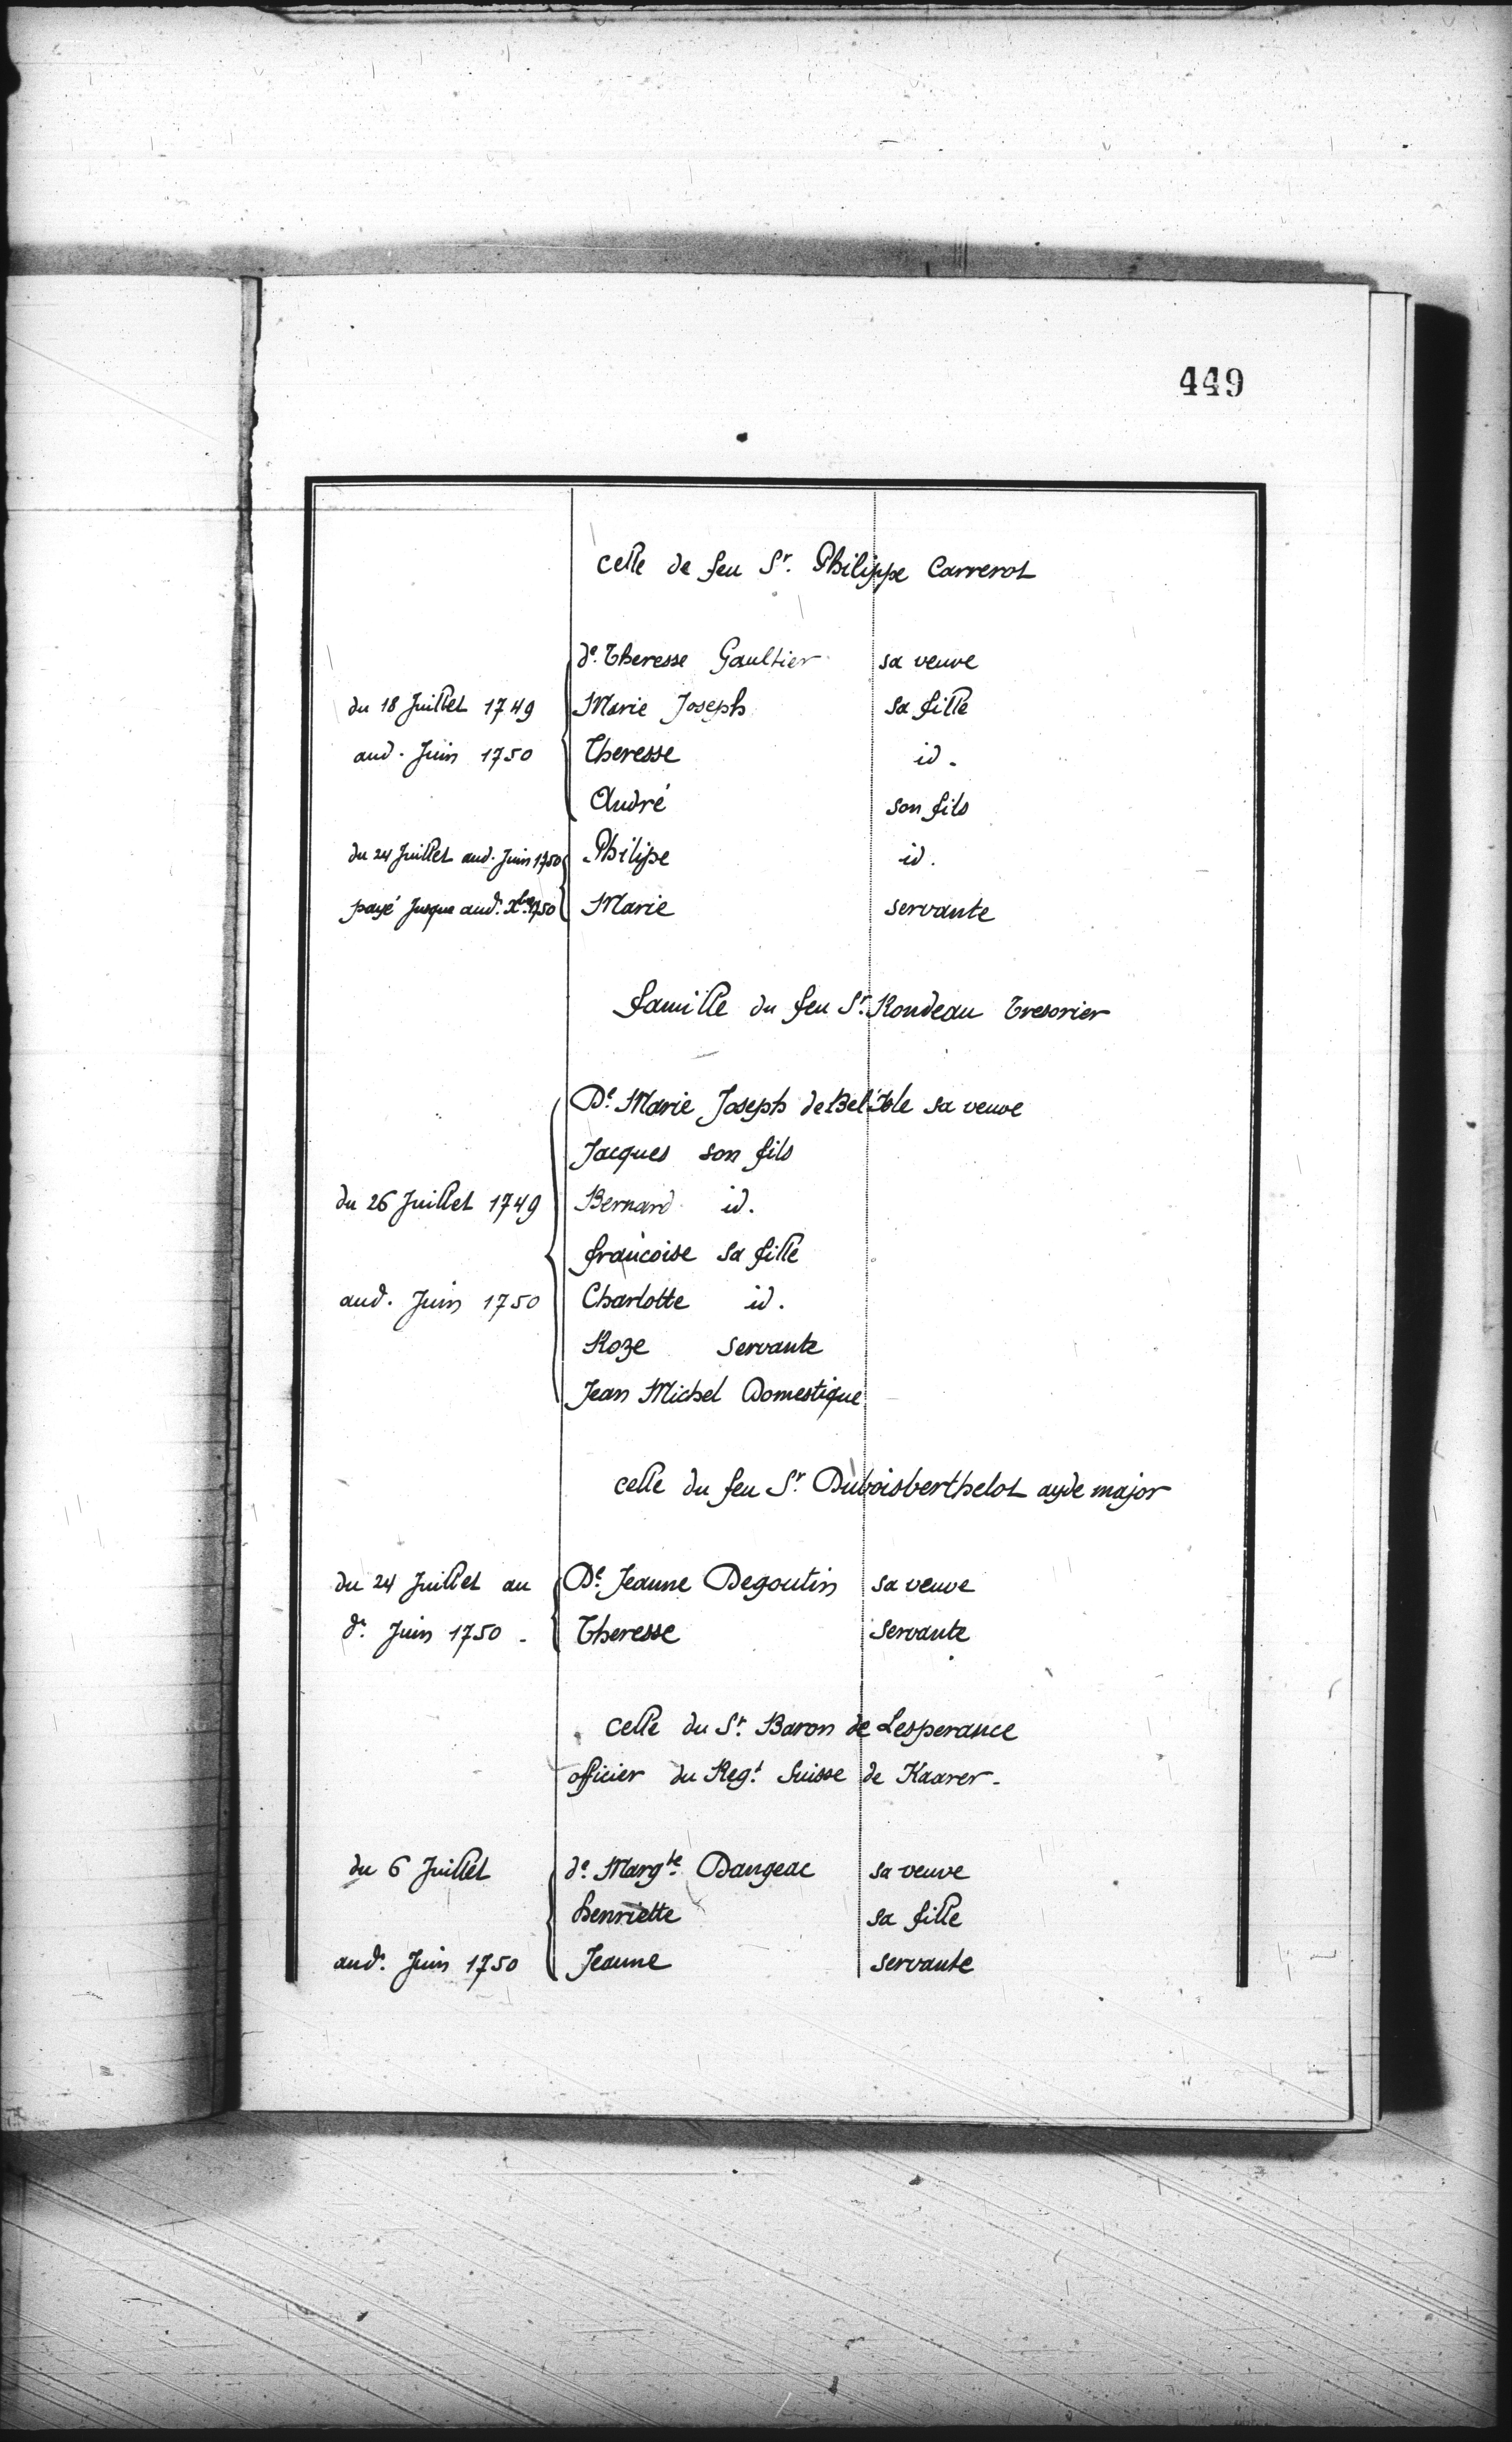 449
celle de feu Sr. Philippe Carrerot
de. Theresse Gaultier sa veuve
du 18 Juillet 1749 Marie Joseph sa fille
aud. Juin 1750 Theresse id.
André son fils
du 24 Juillet aud. Juin 1750 Philipe id.
payé Jusque aud. Xbre 1750 Marie servante
famille du feu Sr. Rondeau Tresorier
De. Marie Joseph de Bel'Isle sa veuve
Jacques son fils
du 26 Juillet 1749 Bernard id.
francoise sa fille
aud. Juin 1750 Charlotte id.
Roze servante
Jean Michel Domestique
celle du feu Sr. Duboisberthelot ayde major
du 24 Juillet au De. Jeanne Degoutin sa veuve
d. Juin 1750 . Theresse servante
celle du Sr. Baron de Lesperance
officier du Regt. Suisse de Kaarer.
du 6 Juillet de. Margte. Dangeac sa veuve
henriette sa fille
aud. Juin 1750 Jeanne servante